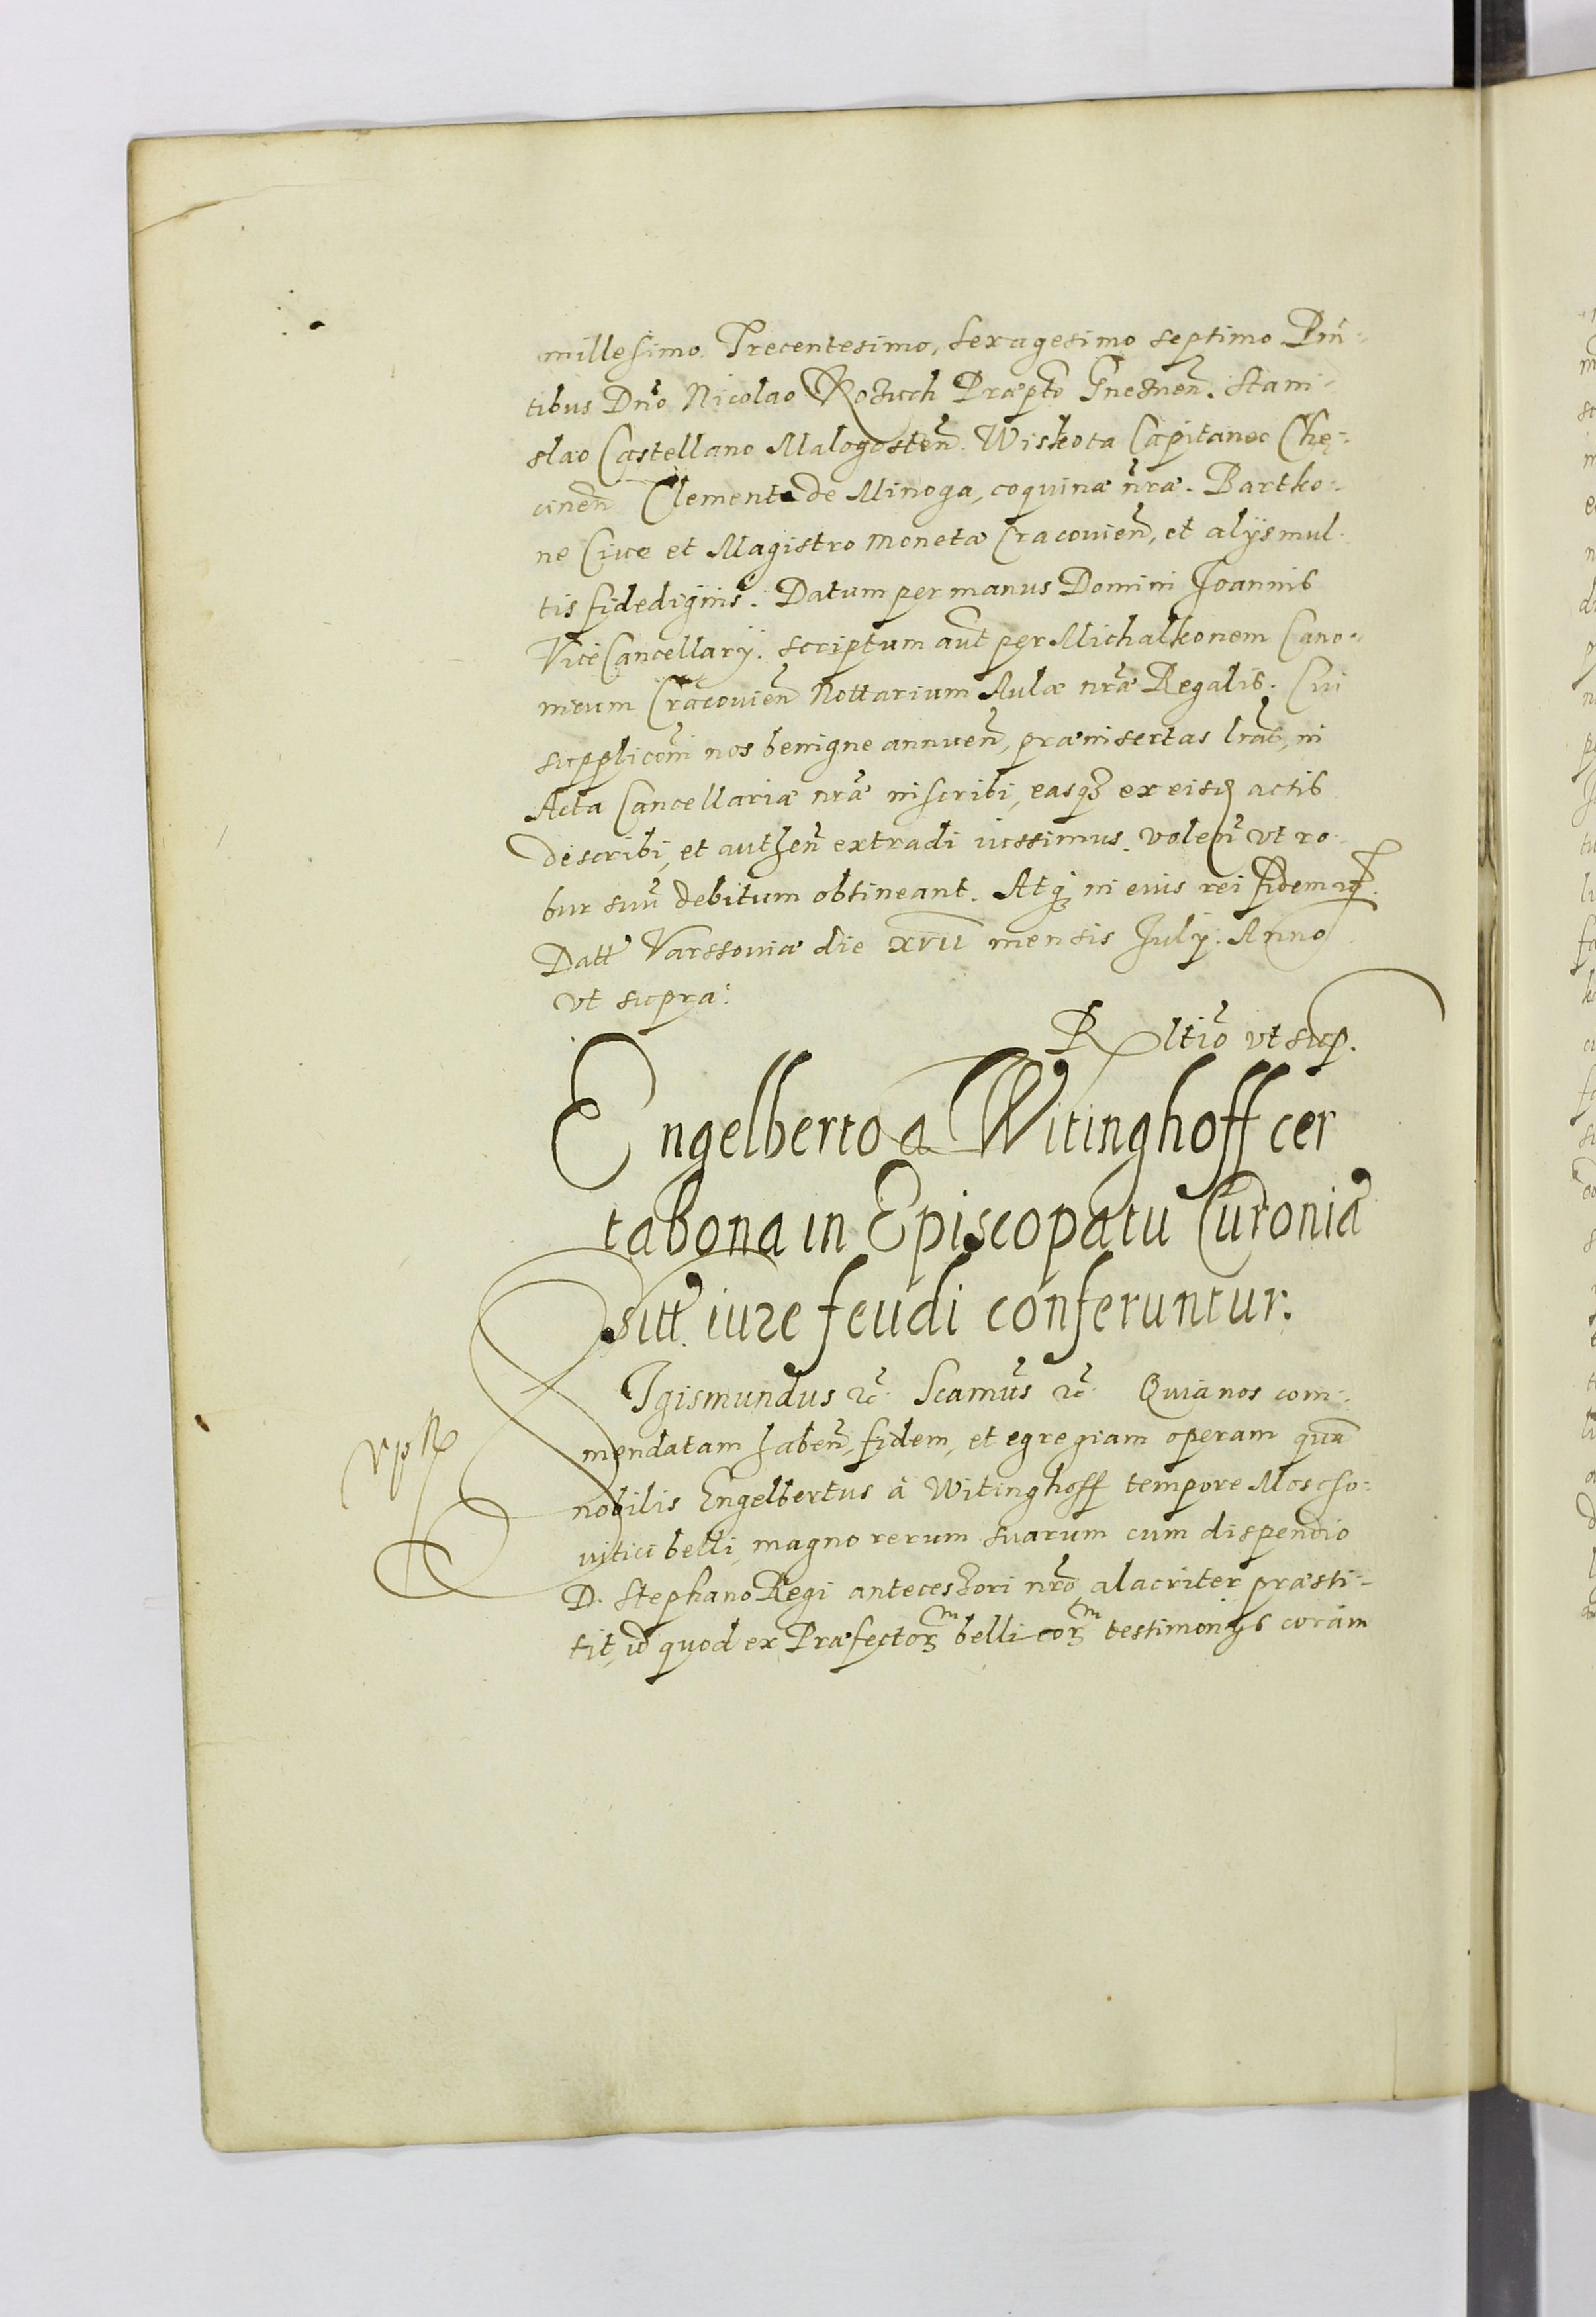 millesimo Trecentesimo, Sexagesimo septimo. Pñ-
tibus Dño Nicolao Kozuch Præpto Gneznen̄. Stani-
slao Castellano Malogosten̄. Wiskota Capitaneo Chę-
cinen̄ Clemente de Minoga, coquinæ nr̄æ. Bartko-
ne Cive et Magistro monetæ Cracovien̄, et alijs mul-
tis fidedignis. Datum per manus Domini Joannis
Vice Cancellarij. scriptum aut̄ per Michalkonem Cano-
nicum Cracovien̄ Nottarium Aulæ nr̄æ Regalis. Cui
supplicōni nos benigne annuen̄, præinsertas lr̄as, in
Acta Cancellariæ nr̄æ inscribi, easq₃ ex eisd actis
describi, et authen̄ extradi iussimus. volen̄ ut ro-
bur suū debitum obtineant. Atq₃ in eius rei fidem ꝛc̄.
Datt Varssoviæ die XVII mensis July. Anno
ut supra.
R ltīo ut sup.
Engelberto a Witinghoff cer
ta bona in Episcopatu Curoniæ
sitt. iure feudi conferuntur.
Sigismundus ꝛc̄. Scamūs ꝛc̄. Quia nos com-
mendatam haben̄, fidem, et egregiam operam quā
nobilis Engelbertus à Witinghoff tempore Moscho-
vitici belli, magno rerum suarum cum dispendio
D. Stephano Regi antecessori nr̄o alacriter præsti-
tit, id quod ex Præfectorꝫᵐ belli eorꝫᵐ testimonijs coram